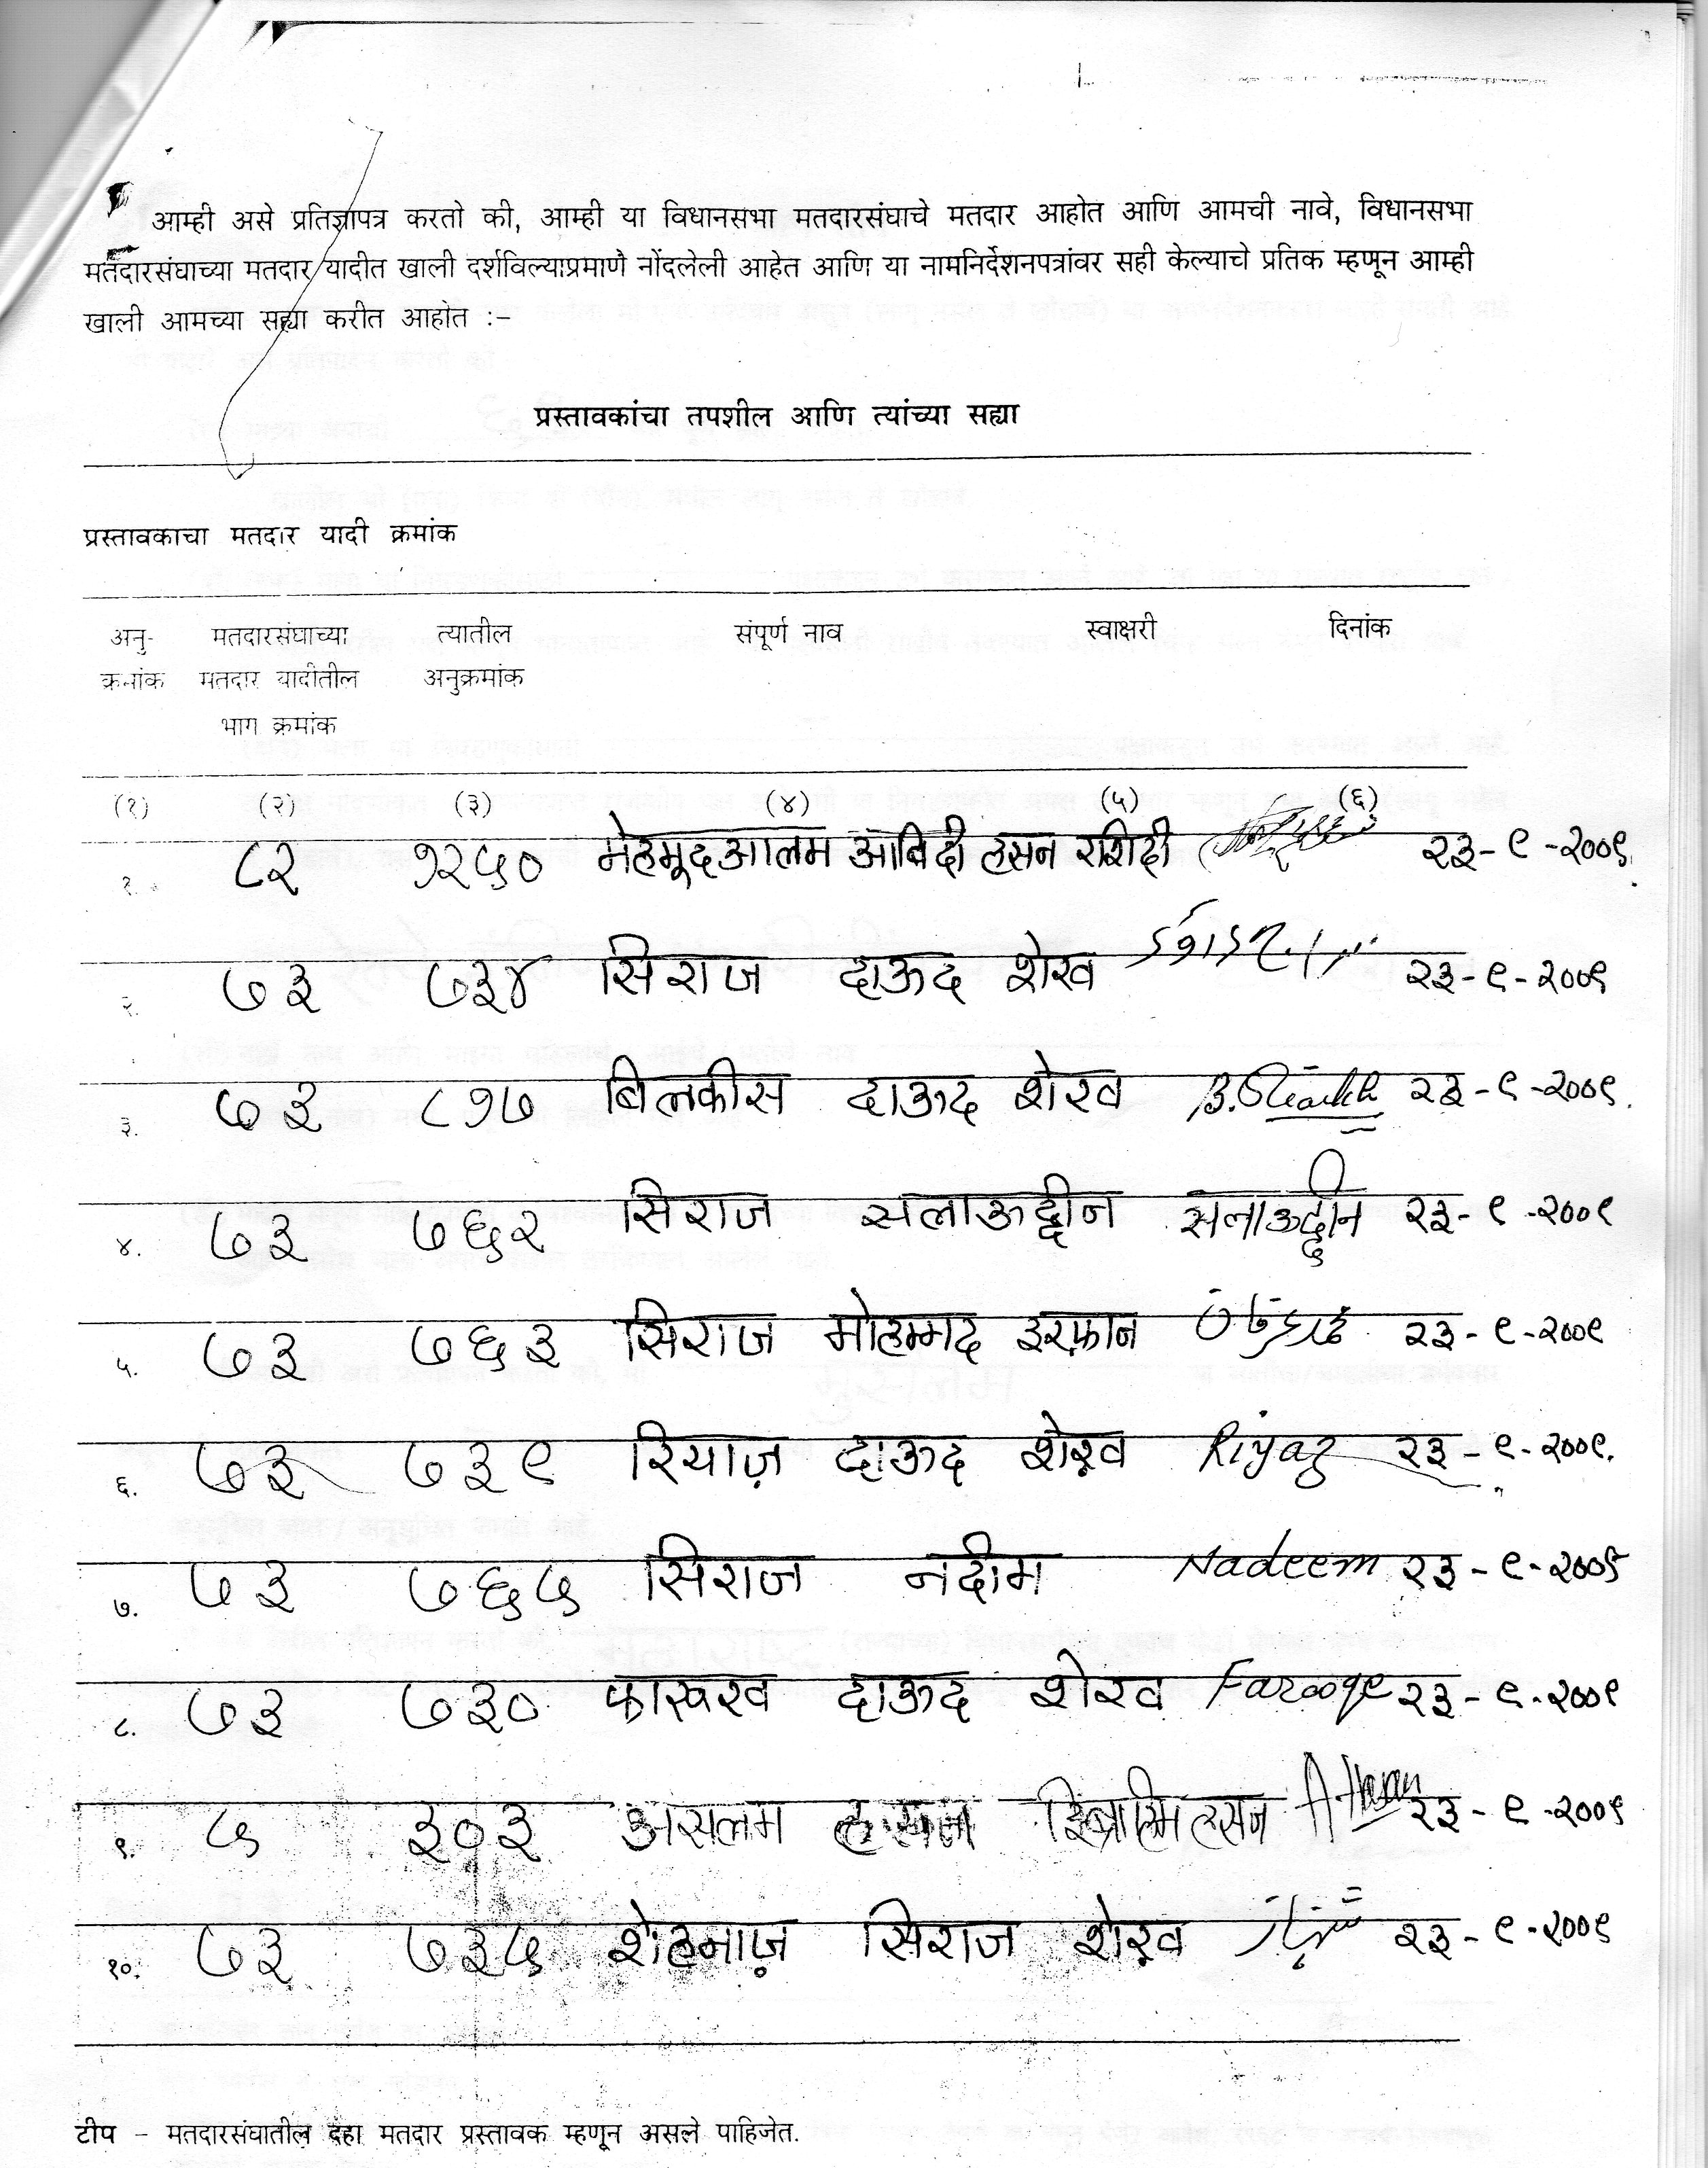 आम्ही असे प्रतिज्ञापत्र करतो की, आम्ही या विधानसभा मतदारसंघाचे मतदार आहोत आणि आमची नावे, विधानसभा
मतदारसंघाच्या मतदार यादीत खाली दर्शविल्याप्रमाणे नोंदलेली आहेत आणि या नामनिर्देशनपत्रांवर सही केल्याचे प्रतिक म्हणून आम्ही
खाली आमच्या सह्या करीत आहोत :–
प्रस्तावकांचा तपशील आणि त्यांच्या सह्या
प्रस्तावकाचा मतदार यादी क्रमांक
अनु- मतदारसंघाच्या त्यातील संपूर्ण नाव स्वाक्षरी दिनांक
क्रमांक मतदार यादीतील अनुक्रमांक
भाग क्रमांक
(१) (२) (३) (४) (५) (६)
१. ८२ १२५० मेहमूदआलम आबिदी हसन राशिदी २३-९-२००९
२. ७३ ७३४ सिराज दाऊद शेख २३-९-२००९
३. ७३ ८१७ बिलकीस दाऊद शेख B.Shaikh २३-९-२००९.
४. ७३ ७६२ सिराज सलाऊद्दीन सलाऊद्दीन २३-९-२००९
५. ७३ ७६३ सिराज मोहम्मद इरफ़ान २३-९-२००९
६. ७३ ७३९ रियाज़ दाऊद शेख़ Riyaz २३-९-२००९.
७. ७३ ७६५ सिराज नदीम Nadeem २३-९-२००९
८. ७३ ७३० फारूख दाऊद शेख Farooqe २३-९-२००९
९. ५ ३०३ असलम हसन २३-९-२००९
१०. ७३ ७३५ शेहनाज़ सिराज शेख़ २३-९-२००९
टीप – मतदारसंघातील दहा मतदार प्रस्तावक म्हणून असले पाहिजेत.